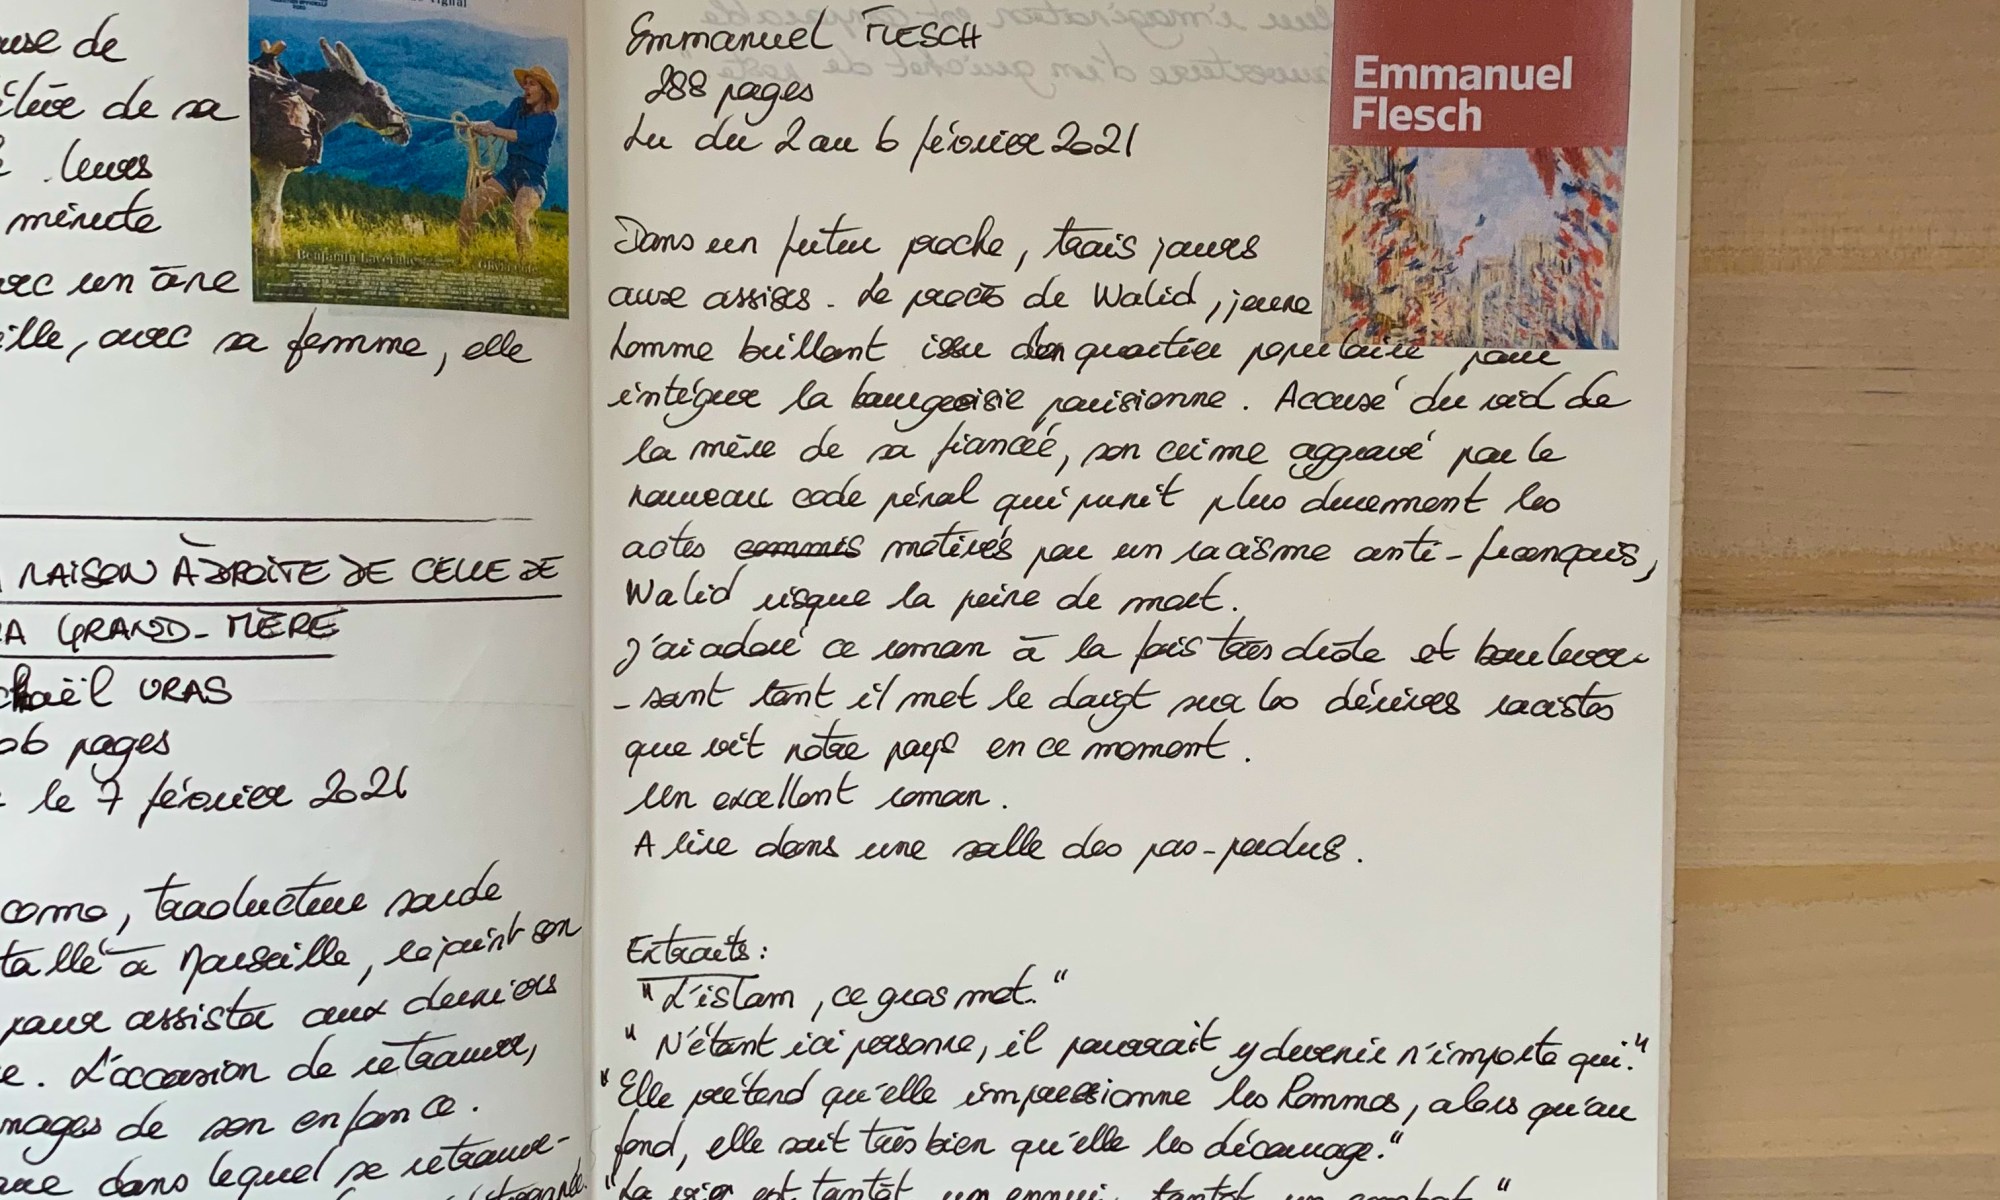 use de
de sa
leurs
minute
avec un âne
eille, avec sa femme, elle
MAISON À DROITE DE CELLE DE
MA GRAND-MÈRE
chaël URAS
06 pages
le 7 février 2021
como, traducteur sarde
tallé à Marseille, rejoint son
pour assister aux derniers
e. L'occasion de retrouver,
mages de son enfance.
dans lequel se retrouve-
Benjamin Lavernhe
Emmanuel FLESCH
288 pages
Lu du 2 au 6 février 2021
Emmanuel
Flesch
Dans un futur proche, trois jours
aux assises. Le procès de Walid, jeune
homme brillant issu d'un quartier populaire pour
intégrer la bourgeoisie parisienne. Accusé du viol de
la mère de sa fiancée, son crime aggravé par le
nouveau code pénal qui punit plus durement les
actes commis motivés par un racisme anti-français,
Walid risque la peine de mort.
J'ai adoré ce roman à la fois très drôle et boulever-
-sant tant il met le doigt sur les dérives racistes
que vit notre pays en ce moment.
Un excellent roman.
A lire dans une salle des pas-perdus.
Extraits :
"L'islam, ce gros mot."
"N'étant ici personne, il pourrait y devenir n'importe qui."
"Elle prétend qu'elle impressionne les hommes, alors qu'au
fond, elle sait très bien qu'elle les décourage."
"La vie est tantôt un ennui, tantôt un combat."